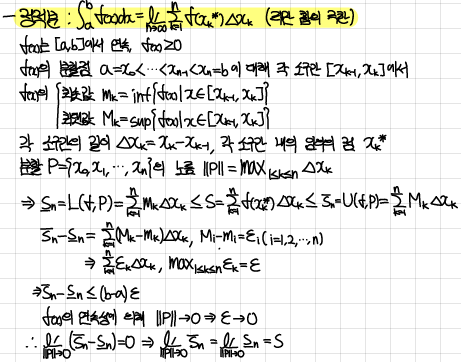 - 정적분 : ∫_a^b f(x)dx = lim_{n→∞} Σ_{k=1}^n f(x_k*) Δx_k (리만 합의 극한)
f(x)는 [a,b]에서 연속, f(x)≥0
f(x)의 분할점 a=x₀<⋯<x_{n-1}<x_n=b에 대해 각 소구간 [x_{k-1}, x_k]에서
f(x)의 { 최솟값 m_k = inf{f(x)|x∈[x_{k-1}, x_k]}
최댓값 M_k = sup{f(x)|x∈[x_{k-1}, x_k]}
각 소구간의 길이 Δx_k = x_k - x_{k-1}, 각 소구간 내의 임의의 점 x_k*
분할 P={x₀, x₁, ⋯, x_n}의 노름 ||P|| = max_{1≤k≤n} Δx_k
⇒ S̲_n = L(f,P) = Σ_{k=1}^n m_k Δx_k ≤ S = Σ_{k=1}^n f(x_k*) Δx_k ≤ S̅_n = U(f,P) = Σ_{k=1}^n M_k Δx_k
S̅_n - S̲_n = Σ_{k=1}^n (M_k - m_k) Δx_k, M_i - m_i = ε_i (i=1,2,⋯,n)
⇒ Σ_{k=1}^n ε_k Δx_k, max_{1≤k≤n} ε_k = ε
⇒ S̅_n - S̲_n ≤ (b-a)ε
f(x)의 연속성에 의해 ||P||→0 ⇒ ε→0
∴ lim_{||P||→0} (S̅_n - S̲_n) = 0 ⇒ lim_{||P||→0} S̅_n = lim_{||P||→0} S̲_n = S